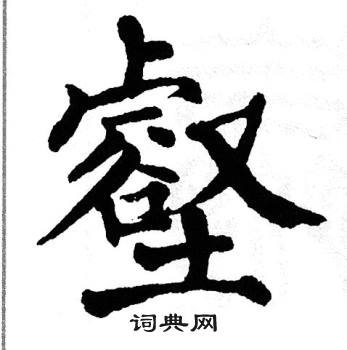 壑
词典网